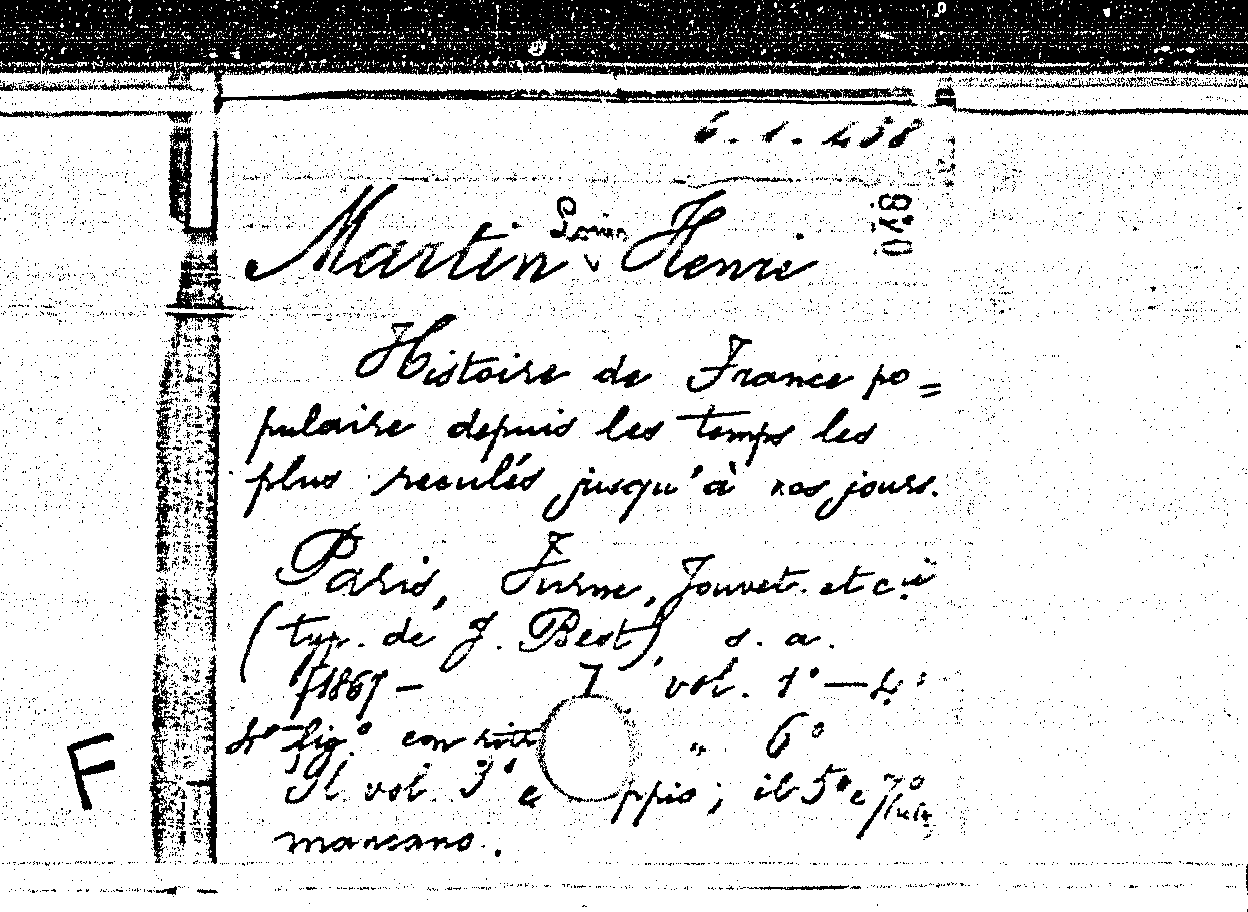 6.1.438
048
Martin Louis Henri
Histoire de France po=
pulaire depuis les temps les
plus reculés jusqu'à nos jours.
Paris, Furne, Jouvet. et c.ie
(typ. de J. Best), s. a.
[1867] — 7 vol. 1° — 4°
4° fig.° con ritr " 6°
F
Il vol. 3° e ppio; il 5° e 7°
mancano.